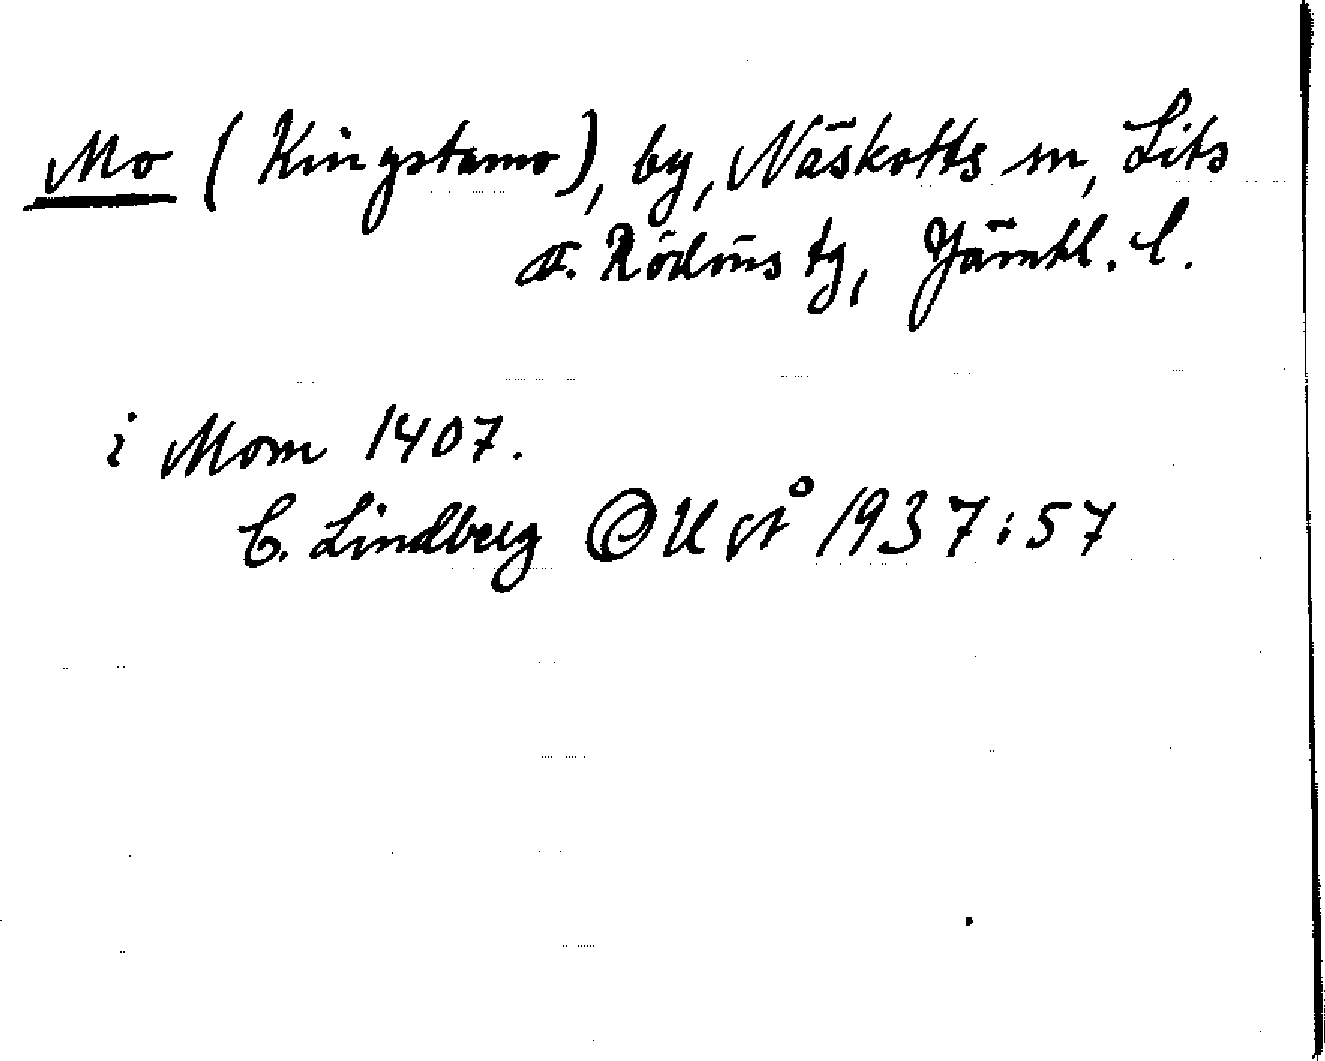 Mo (Kingstamo), by, Näskotts sn, Lits
o. Rödöns tg, Jämtl. l.
i Mom 1407.
C. Lindberg ⓒ U st å 1937:57